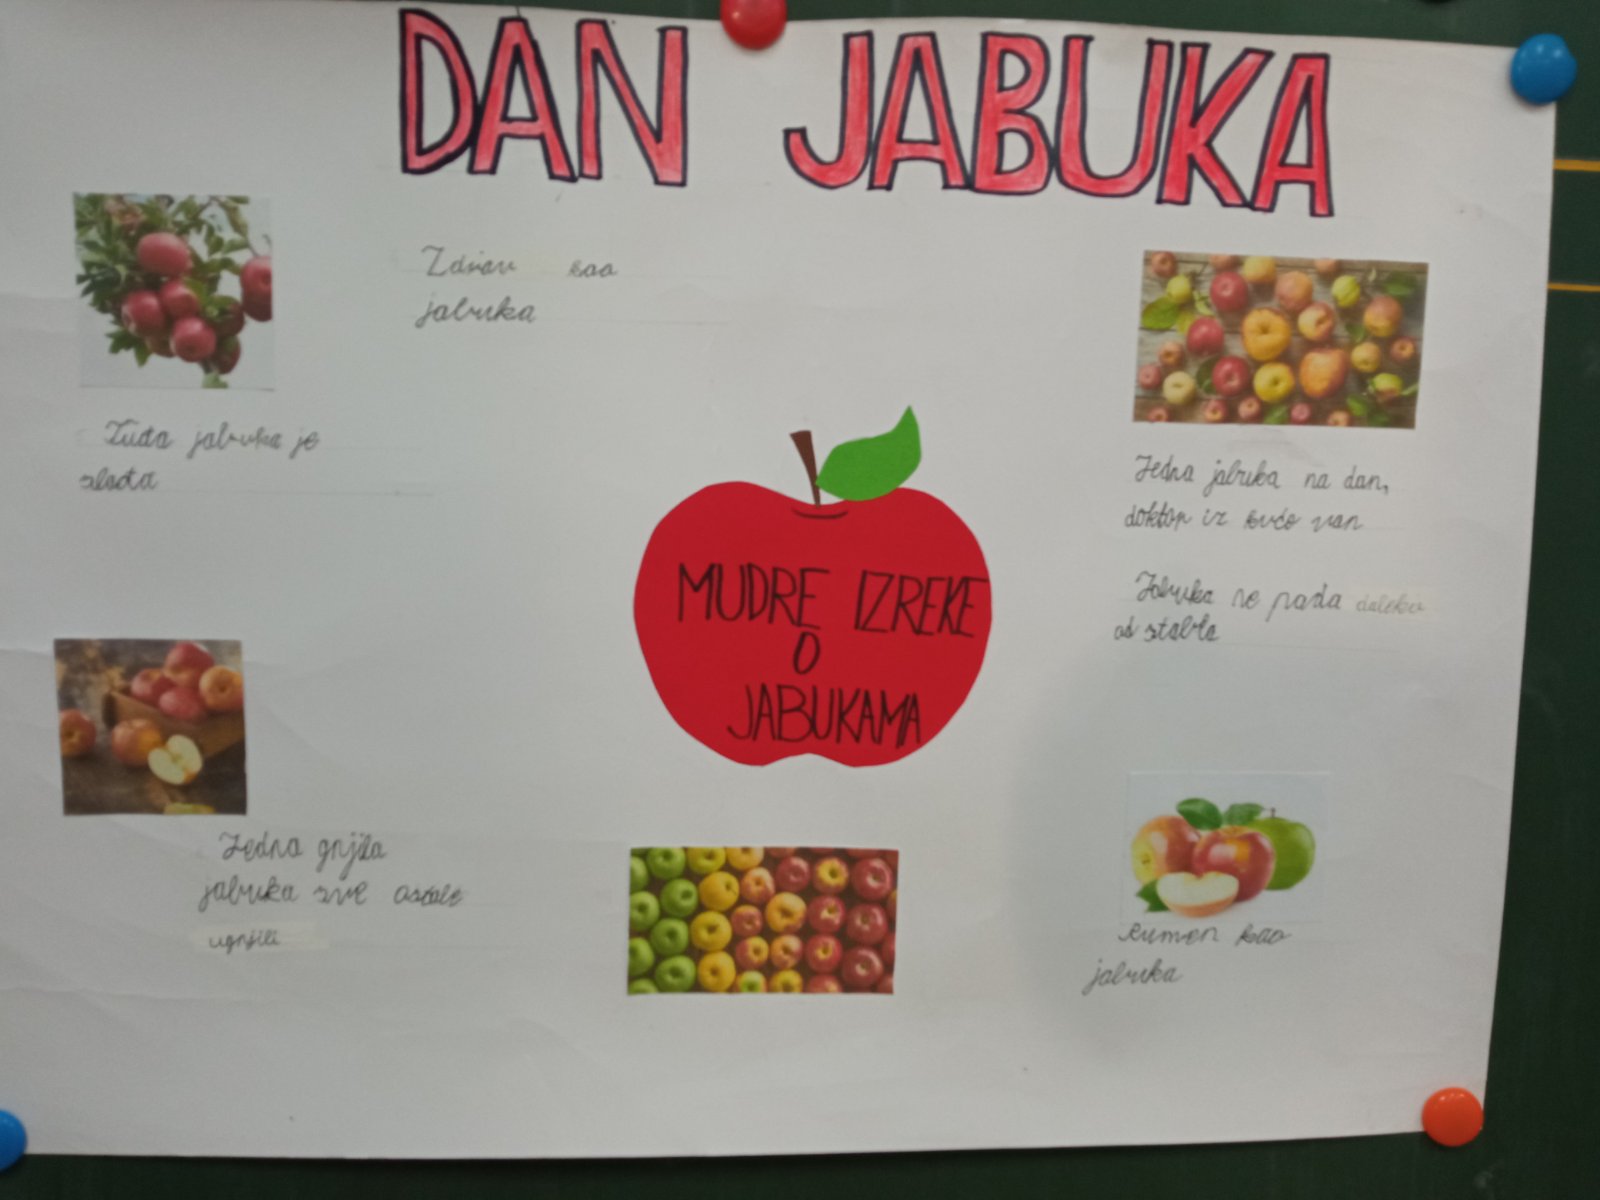 DAN JABUKA
Zdrav kao
jabuka
Tuđa jabuka je
slađa
Jedna jabuka na dan,
doktor iz kuće van
Jabuka ne pada daleko
od stabla
MUDRE IZREKE
O
JABUKAMA
Jedna gnjila
jabuka sve ostale
ugnjili
Rumen kao
jabuka